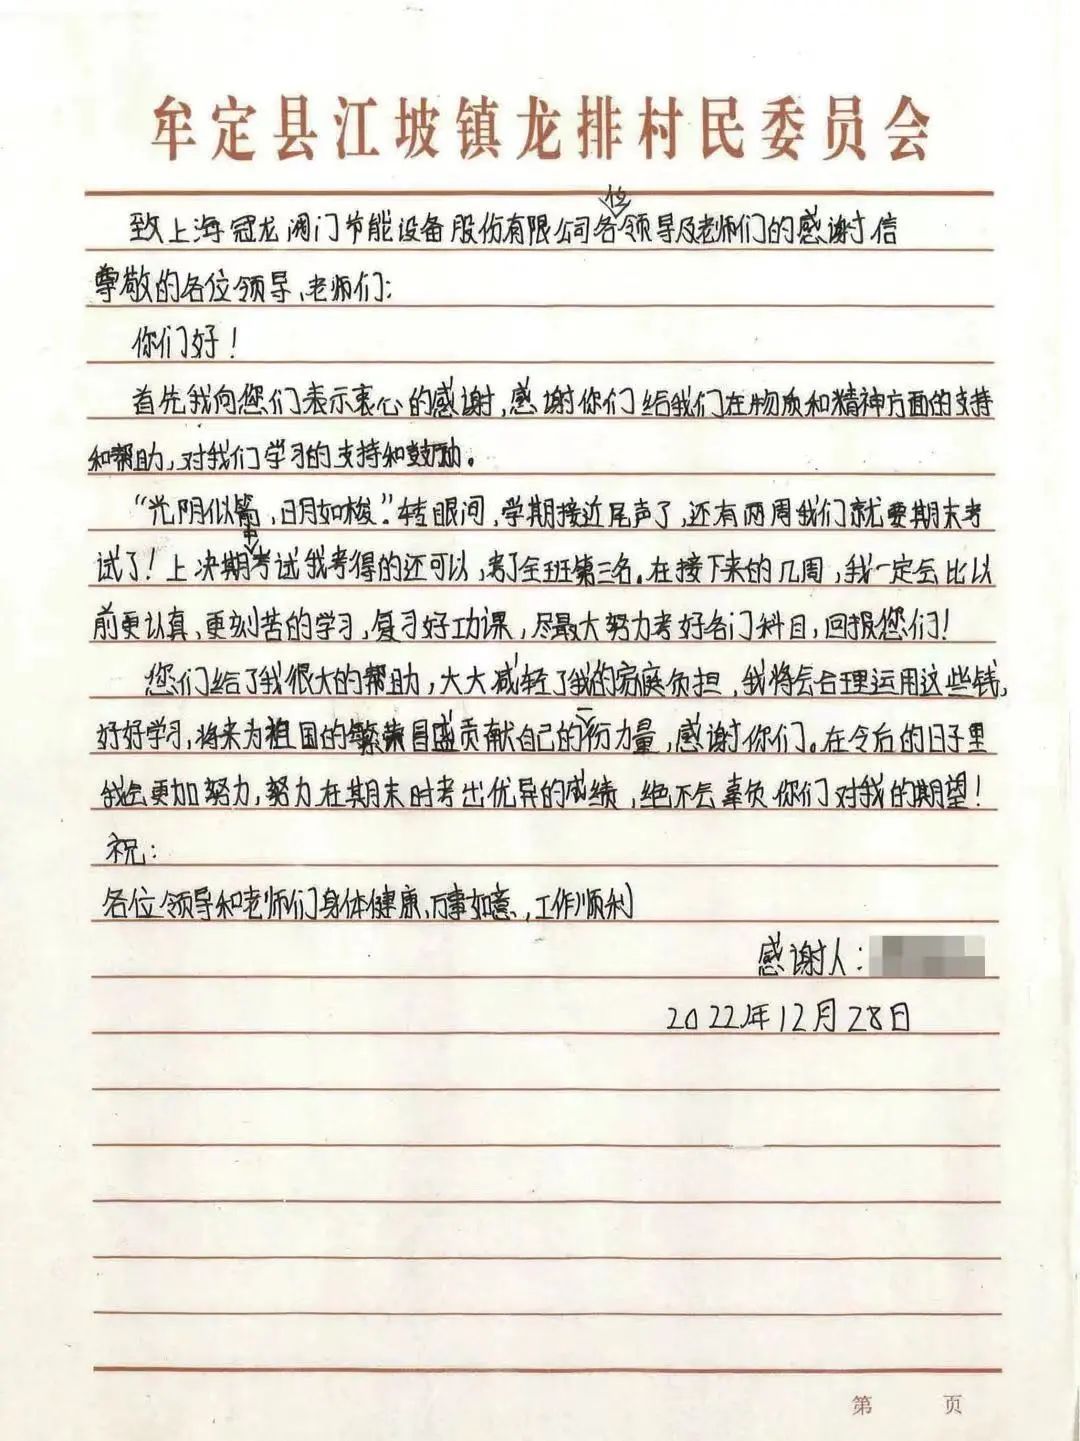 牟定县江坡镇龙排村民委员会
致上海冠龙阀门节能设备股份有限公司各位领导及老师们的感谢信
尊敬的各位领导、老师们:
你们好!
首先我向您们表示衷心的感谢,感谢你们给我们在物质和精神方面的支持
和帮助,对我们学习的支持和鼓励。
“光阴似箭,日月如梭”。转眼间,学期接近尾声了,还有两周我们就要期末考
试了!上次期中考试我考得的还可以,考了全班第三名。在接下来的几周,我一定会比以
前更认真,更刻苦的学习,复习好功课,尽最大努力考好各门科目,回报您们!
您们给了我很大的帮助,大大减轻了我的家庭负担,我将会合理运用这些钱,
好好学习,将来为祖国的繁荣昌盛贡献自己的一份力量,感谢你们。在今后的日子里
我会更加努力,努力在期末时考出优异的成绩,绝不会辜负你们对我的期望!
祝:
各位领导和老师们身体健康、万事如意,工作顺利
感谢人:
2022年12月28日
第 页